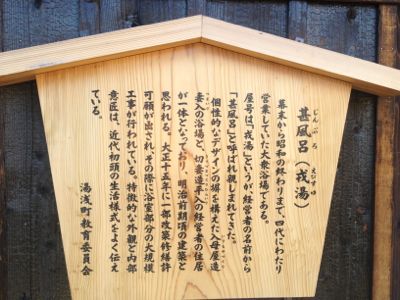 じんぶろ
えびすゆ
甚風呂(戎湯)
幕末から昭和の終わりまで、四代にわたり
営業していた大衆浴場である。
屋号は「戎湯」というが、経営者の名前から
「甚風呂」と呼ばれ親しまれてきた。
個性的なデザインの塀を構えた入母屋造
妻入の浴場と、切妻造平入の経営者の住居
が一体となっており、明治前期頃の建築と
思われる。大正十五年に一部改築修繕許
可願が出され、その際に浴室部分の大規模
工事が行われている。特徴的な外観と内部
意匠は、近代初頭の生活様式をよく伝え
ている。
湯浅町教育委員会